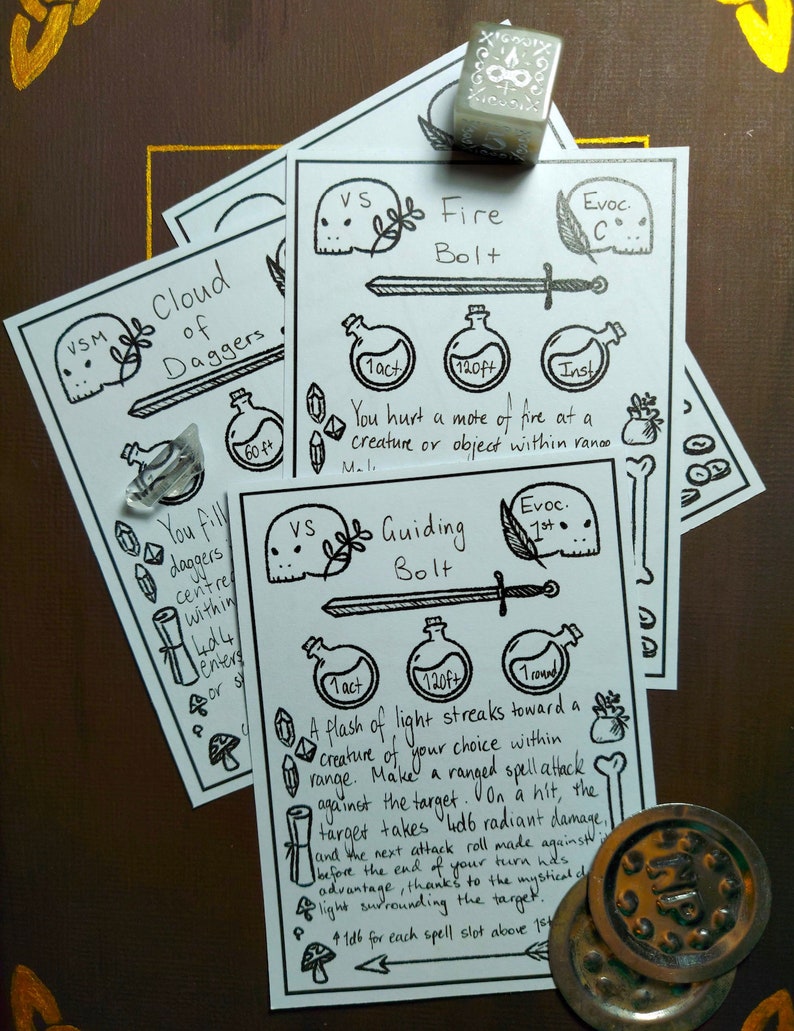 VS
Fire
Bolt
Evoc.
C
1act.
120ft
Inst
You hurt a mote of fire at a
creature or object within
VSM
Cloud
of
Daggers
60ft
You fill
daggers
centred
within
4d4
enters
or
VS
Guiding
Bolt
Evoc.
1st
1act
120ft
1round
A flash of light streaks toward a
creature of your choice within
range. Make a ranged spell attack
against the target. On a hit, the
target takes 4d6 radiant damage,
and the next attack roll made against
before the end of your turn has
advantage, thanks to the mystical
light surrounding the target.
↑1d6 for each spell slot above 1st